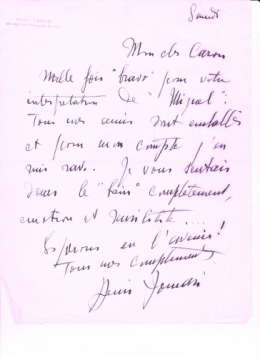 Samedi
Mon cher Caron
Mille fois "bravo" pour votre
interprétation de
Tous mes amis sont emballés
et pour mon compte j'en
suis ravi. Je vous sentais
dans le "bain" complètement,
émotion et sensibilité....
Espérons en l'avenir!
Tous mes compliments